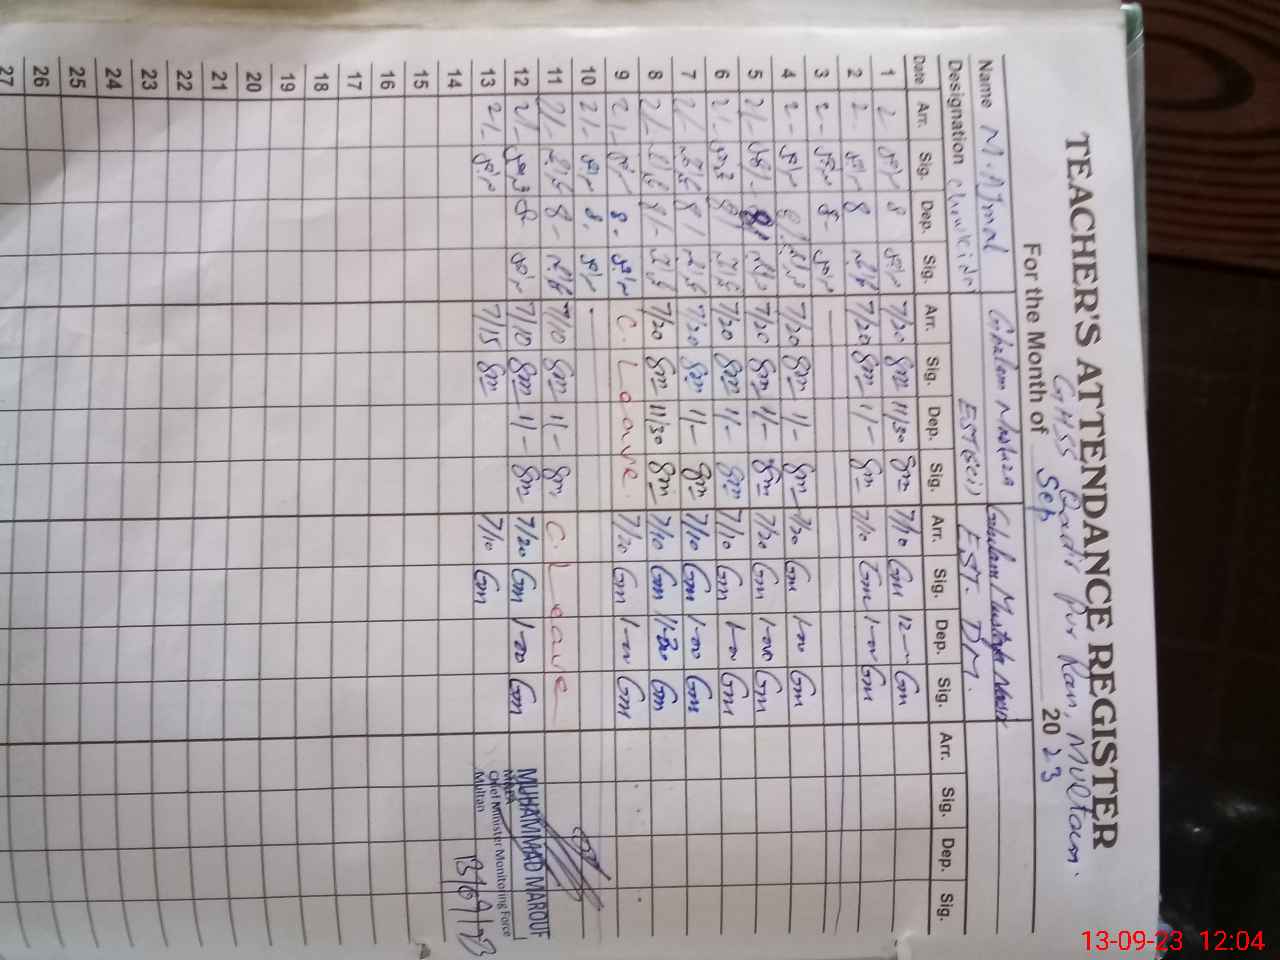 TEACHER'S ATTENDANCE REGISTER
GHSS Qadir Pur Ran, Multan.
For the Month of Sep 2023
Name M. Ajmal Ghulam Murtaza Ghulam Mustafa Nasir
Designation EST (Sci) EST. DM.
Date Arr. Sig. Dep. Sig. Arr. Sig. Dep. Sig. Arr. Sig. Dep. Sig. Arr. Sig. Dep. Sig.
1 2- 8 7/20 gm 11/30 gm 7/10 Gm 12- Gm
2 2- 8 7/20 gm 11/- gm 7/10 Gm 1-00 Gm
3 2- 8- -
4 2- 8/ 7/20 gm 11/- gm 7/30 Gm 1-00 Gm
5 2/- 8/ 7/20 gm 11/- gm 7/30 Gm 1-00 Gm
6 2/- 8/ 7/20 gm 11/- gm 7/10 Gm 1-00 Gm
7 2/- 8/ 7/20 gm 11/- gm 7/10 Gm 1-00 Gm
8 2/- 8/- 7/20 gm 11/30 gm 7/10 Gm 11-30 Gm
9 2/- 8- C. Leave. 7/20 Gm 1-00 Gm
10 2/- 8. -
11 2/- 8- 7/10 gm 11/- gm C. Leave
12 2/- 8- 7/10 gm 11/- gm 7/20 Gm 1-00 Gm
13 2/- 7/15 gm 7/10 Gm
14
15
16
17
18
19
20
21
22
23
24
25
26
27
MUHAMMAD MAROUF
MNEA
Chief Minister Monitoring Force
Multan
13/09/23
13-09-23 12:04